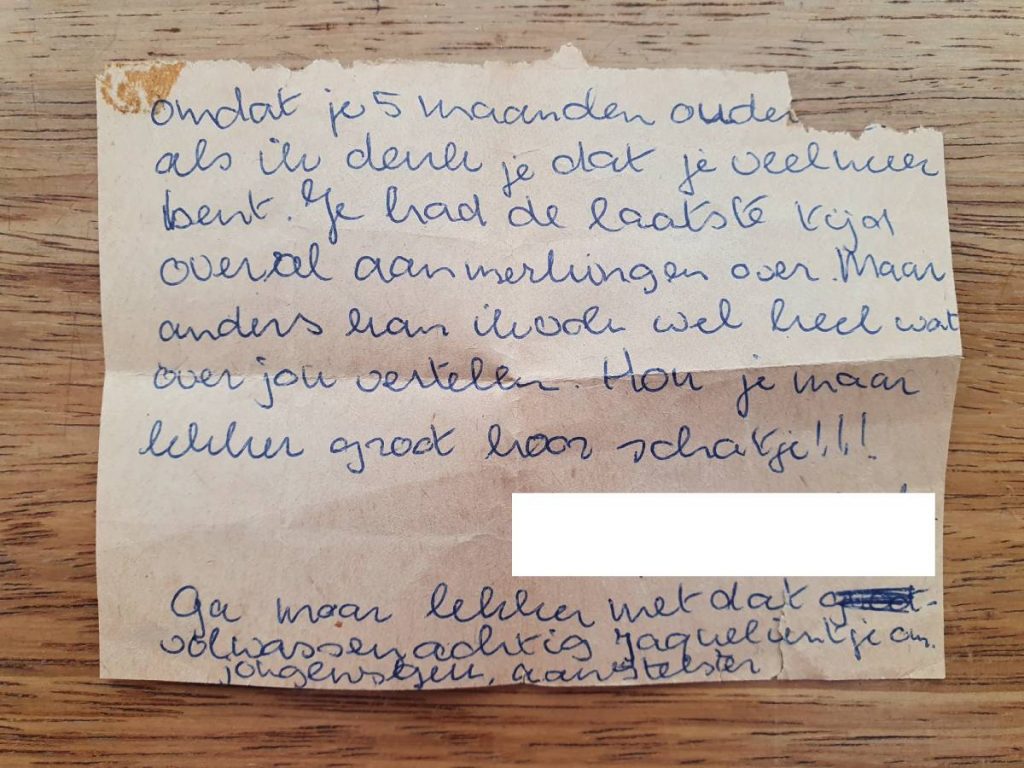 omdat je 5 maanden ouder
als ik denk je dat je veel meer
bent. Je had de laatste tijd
overal aanmerkingen over. Maar
anders kan ik ook wel heel wat
over jou vertellen. Hou je maar
lekker groot hoor schatje!!!
Ga maar lekker met dat
volwassenachtig Jaquelientje om.
aanstelster